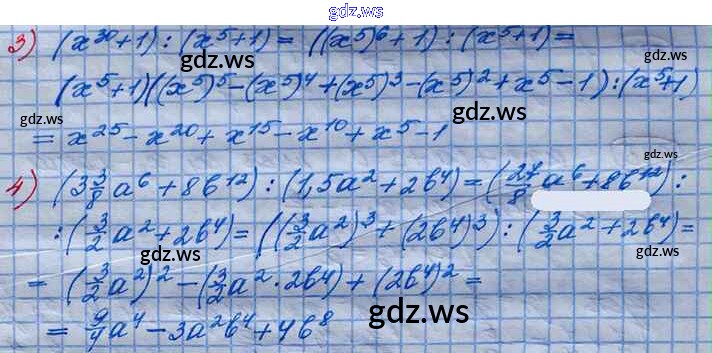 gdz.ws
3) (x³⁰+1) : (x⁵+1) = ((x⁵)⁶+1) : (x⁵+1) =
gdz.ws gdz.ws
(x⁵+1)((x⁵)⁵-(x⁵)⁴+(x⁵)³-(x⁵)²+x⁵-1) : (x⁵+1)
gdz.ws gdz.ws
= x²⁵ - x²⁰ + x¹⁵ - x¹⁰ + x⁵ - 1
gdz.ws
4) (3 3/8 a⁶ + 8b¹²) : (1,5a² + 2b⁴) = (27/8 a⁶ + 8b¹²) :
gdz.ws
: (3/2 a² + 2b⁴) = ((3/2 a²)³ + (2b⁴)³) : (3/2 a² + 2b⁴) =
gdz.ws gdz.ws
= (3/2 a²)² - (3/2 a² · 2b⁴) + (2b⁴)² =
gdz.ws
= 9/4 a⁴ - 3a²b⁴ + 4b⁸